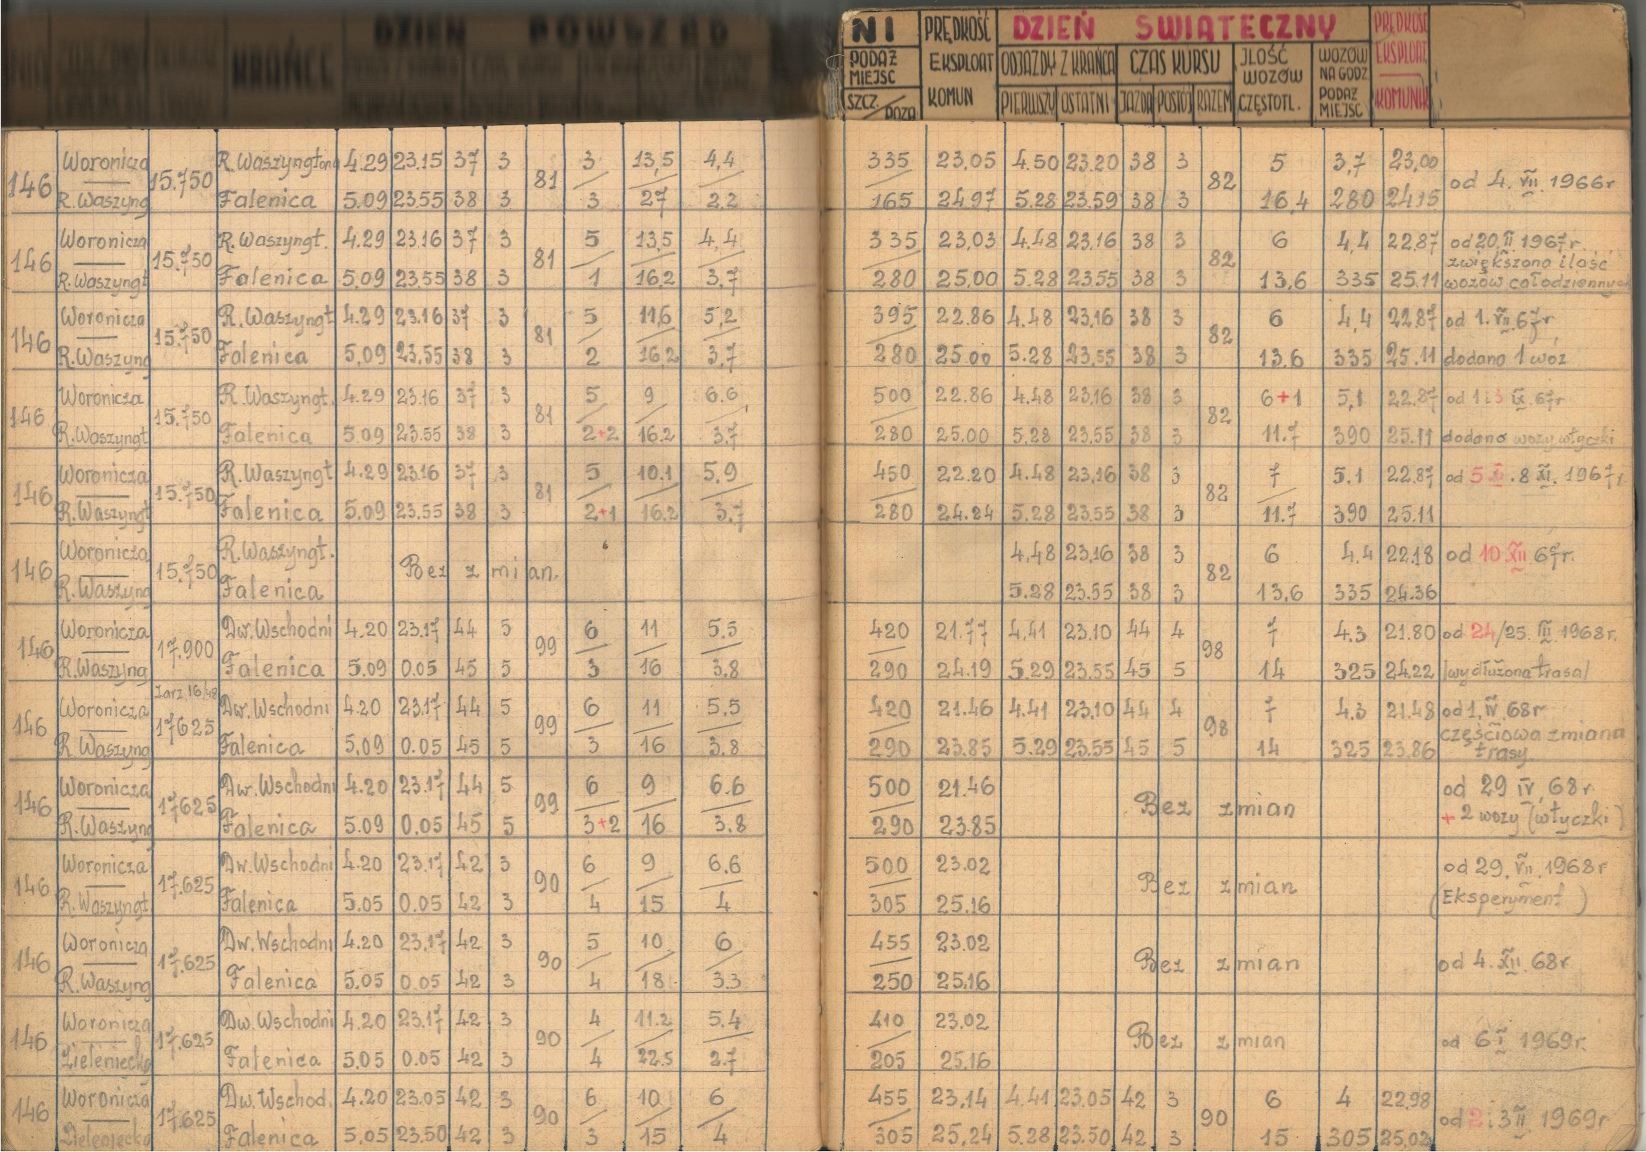 DZIEŃ POWSZED
KRAŃCE
NI PRĘDKOŚĆ DZIEŃ ŚWIĄTECZNY PRĘDKOŚĆ
PODAŻ MIEJSC EKSPLOAT ODJAZDY Z KRAŃCA CZAS KURSU JLOŚĆ WOZÓW WOZÓW NA GODZ EKSPLOAT
SZCZ./POZA KOMUN PIERWSZY OSTATNI JAZDA POSTÓJ RAZEM CZĘSTOTL. PODAŻ MIEJSC KOMUNIK
146 Woronicza 15.750 R. Waszyngtona 4.29 23.15 37 3 81 3 13,5 4,4 335 23.05 4.50 23.20 38 3 82 5 3,7 23,00 od 4. VII 1966r
R. Waszyng Falenica 5.09 23.55 38 3 3 27 2.2 165 24.97 5.28 23.59 38 3 16,4 280 24.15
146 Woronicza 15.750 R. Waszyngt. 4.29 23.16 37 3 81 5 13,5 4,4 335 23,03 4.48 23,16 38 3 82 6 4,4 22,87 od 20.II 1967r. zwiększona ilość
R. Waszyngt Falenica 5.09 23.55 38 3 1 16.2 3.7 280 25,00 5.28 23.55 38 3 13,6 335 25.11 wozów całodziennych
146 Woronicza 15.750 R. Waszyngt 4.29 23.16 37 3 81 5 11,6 5,2 395 22.86 4.48 23,16 38 3 82 6 4,4 22,87 od 1. VII.67r
R. Waszyng Falenica 5.09 23.55 38 3 2 16,2 3,7 280 25.00 5.28 23,55 38 3 13.6 335 25.11 dodano 1 wóz
146 Woronicza 15.750 R. Waszyngt. 4.29 23.16 37 3 81 5 9 6.6 500 22.86 4.48 23,16 38 3 82 6+1 5,1 22.87 od 1 i 3 IX. 67r
R. Waszyngt Falenica 5.09 23.55 38 3 2+2 16.2 3.7 280 25.00 5.28 23,55 38 3 11.7 390 25.11 dodano wozy włyczki
146 Woronicza 15.750 R. Waszyngt 4.29 23.16 37 3 81 5 10.1 5,9 450 22.20 4.48 23,16 38 3 82 7 5.1 22.87 od 5 XI. 8 XI. 1967r.
R. Waszyngt Falenica 5.09 23.55 38 3 2+1 16.2 3.7 280 24.24 5.28 23.55 38 3 11.7 390 25.11
146 Woronicza 15.750 R. Waszyngt. Bez zmian. 4,48 23,16 38 3 82 6 4.4 22.18 od 10 XII 67r.
R. Waszyng Falenica 5.28 23.55 38 3 13,6 335 24.36
146 Woronicza 17.900 Dw. Wschodni 4.20 23.17 44 5 99 6 11 5.5 420 21.77 4.41 23.10 44 4 98 7 4.3 21.80 od 24/25. III 1968r.
R. Waszyng Falenica 5.09 0.05 45 5 3 16 3.8 290 24.19 5.29 23.55 45 5 14 325 24.22 /wydłużona trasa/
Zarz. 16/48
146 Woronicza 17625 Dw. Wschodni 4.20 23.17 44 5 99 6 11 5.5 420 21.46 4.41 23.10 44 4 98 7 4.3 21.48 od 1, IV 68r częściowa zmiana
R. Waszyng Falenica 5.09 0.05 45 5 3 16 3.8 290 23.85 5.29 23.55 45 5 14 325 23.86 trasy
146 Woronicza 17625 Dw. Wschodni 4.20 23.17 44 5 99 6 9 6.6 500 21.46 Bez zmian od 29 IV, 68r
R. Waszyng Falenica 5.09 0,05 45 5 3+2 16 3.8 290 23.85 + 2 wozy (włyczki)
146 Woronicza 17.625 Dw. Wschodni 4.20 23.17 42 3 90 6 9 6.6 500 23.02 Bez zmian od 29. VII. 1968r
R. Waszyngt Falenica 5.05 0.05 42 3 4 15 4 305 25.16 (Eksperyment)
146 Woronicza 17.625 Dw. Wschodni 4.20 23.17 42 3 90 5 10 6 455 23.02 Bez zmian od 4. XII. 68r
R. Waszyng Falenica 5.05 0.05 42 3 4 18 3.3 250 25.16
146 Woronicza 17.625 Dw. Wschodni 4.20 23.17 42 3 90 4 11.2 5.4 410 23.02 Bez zmian od 6 I 1969r.
Zieleniecka Falenica 5.05 0.05 42 3 4 22.5 2.7 205 25.16
146 Woronicza 17.625 Dw. Wschod. 4.20 23.05 42 3 90 6 10 6 455 23,14 4.41 23.05 42 3 90 6 4 22.98 od 2 i 3 II 1969r
Zieleniecka Falenica 5.05 23.50 42 3 3 15 4 305 25,24 5.28 23.50 42 3 15 305 25,02